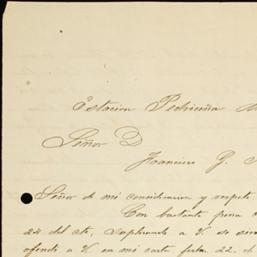 Estacion Pedriceña
Señor D
Francisco G.
Señor de mi consideracion y respeto
Con bastante pena
24 del cte, suplicando a V. se
ofendo a V. en mi carta fecha 22, el